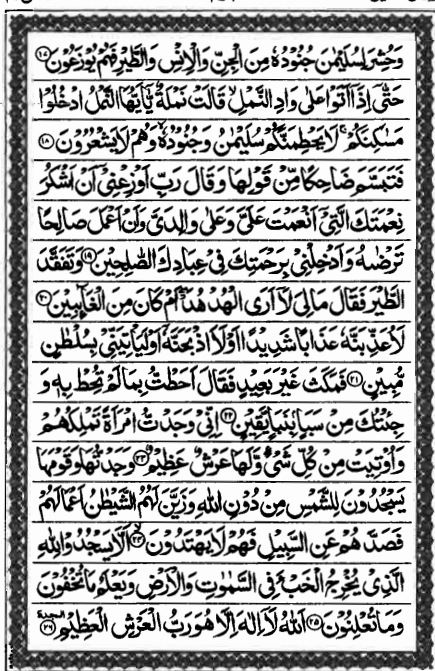 وَحُشِرَ لِسُلَيْمٰنَ جُنُوْدُهٗ مِنَ الْجِنِّ وَالْاِنْسِ وَالطَّيْرِ فَهُمْ يُوْزَعُوْنَ ۝۱۷
حَتّٰۤى اِذَاۤ اَتَوْا عَلٰى وَادِ النَّمْلِ ۙ قَالَتْ نَمْلَةٌ يّٰۤاَيُّهَا النَّمْلُ ادْخُلُوْا
مَسٰكِنَكُمْ ۚ لَا يَحْطِمَنَّكُمْ سُلَيْمٰنُ وَجُنُوْدُهٗ ۙ وَهُمْ لَا يَشْعُرُوْنَ ۝۱۸
فَتَبَسَّمَ ضَاحِكًا مِّنْ قَوْلِهَا وَقَالَ رَبِّ اَوْزِعْنِيْۤ اَنْ اَشْكُرَ
نِعْمَتَكَ الَّتِيْۤ اَنْعَمْتَ عَلَيَّ وَعَلٰى وَالِدَيَّ وَاَنْ اَعْمَلَ صَالِحًا
تَرْضٰىهُ وَاَدْخِلْنِيْ بِرَحْمَتِكَ فِيْ عِبَادِكَ الصّٰلِحِيْنَ ۝۱۹ وَتَفَقَّدَ
الطَّيْرَ فَقَالَ مَا لِيَ لَاۤ اَرَى الْهُدْهُدَ ۖ اَمْ كَانَ مِنَ الْغَآئِبِيْنَ ۝۲۰
لَاُعَذِّبَنَّهٗ عَذَابًا شَدِيْدًا اَوْ لَاۡاَذْبَحَنَّهٗۤ اَوْ لَيَاْتِيَنِّيْ بِسُلْطٰنٍ
مُّبِيْنٍ ۝۲۱ فَمَكَثَ غَيْرَ بَعِيْدٍ فَقَالَ اَحَطْتُّ بِمَا لَمْ تُحِطْ بِهٖ وَ
جِئْتُكَ مِنْ سَبَاٍۭ بِنَبَاٍ يَّقِيْنٍ ۝۲۲ اِنِّيْ وَجَدْتُّ امْرَاَةً تَمْلِكُهُمْ
وَاُوْتِيَتْ مِنْ كُلِّ شَيْءٍ وَّلَهَا عَرْشٌ عَظِيْمٌ ۝۲۳ وَجَدْتُّهَا وَقَوْمَهَا
يَسْجُدُوْنَ لِلشَّمْسِ مِنْ دُوْنِ اللّٰهِ وَزَيَّنَ لَهُمُ الشَّيْطٰنُ اَعْمَالَهُمْ
فَصَدَّهُمْ عَنِ السَّبِيْلِ فَهُمْ لَا يَهْتَدُوْنَ ۝۲۴ اَلَّا يَسْجُدُوْا لِلّٰهِ
الَّذِيْ يُخْرِجُ الْخَبْءَ فِي السَّمٰوٰتِ وَالْاَرْضِ وَيَعْلَمُ مَا تُخْفُوْنَ
وَمَا تُعْلِنُوْنَ ۝۲۵ اَللّٰهُ لَاۤ اِلٰهَ اِلَّا هُوَ رَبُّ الْعَرْشِ الْعَظِيْمِ ۝۲۶ السجدة